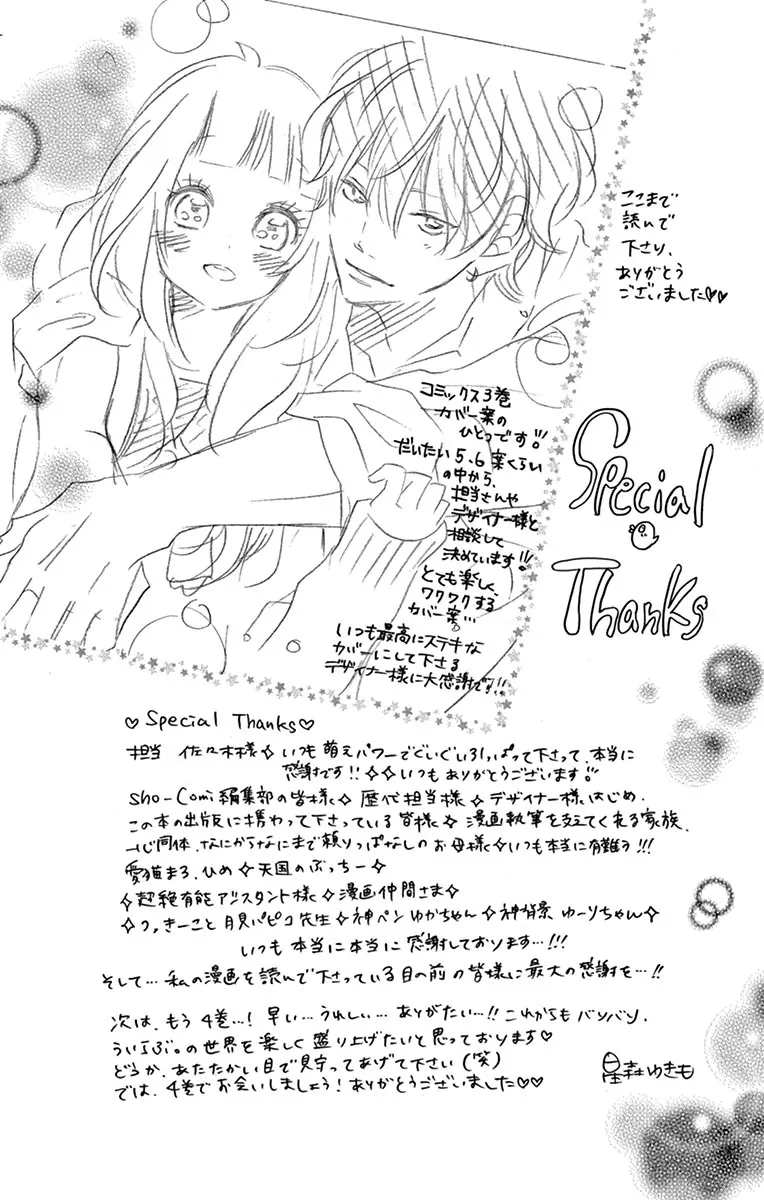 ここまで
読んで
下さり、
ありがとう
ございました♡♡
Special
Thanks
コミックス3巻
カバー案の
ひとつです!!
だいたい5、6案くらい
の中から、
担当さんや
デザイナー様と
相談して
決めています!!
とても楽しく、
ワクワクする
カバー案…
いつも最高にステキな
カバーにして下さる
デザイナー様に大感謝です!!
♡Special Thanks♡
担当 佐々木様✧いつも萌えパワーでぐいぐい引っぱって下さって、本当に
感謝です!!✧✧いつもありがとうございます!!
Sho-Comi編集部の皆様✧歴代担当様✧デザイナー様はじめ、
この本の出版に携わって下さっている皆様✧漫画執筆を支えてくれる家族、
一心同体、なにからなにまで頼りっぱなしのお母様✧いつも本当に有難う!!!
愛猫まる、ひめ✧天国のぶっちー✧
✧超絶有能アシスタント様✧漫画仲間さま✧
✧つっきーこと月見パピコ先生✧神ペンゆかちゃん✧神背景ゆーりちゃん✧
いつも本当に本当に感謝しております…!!!
そして…私の漫画を読んで下さっている目の前の皆様に最大の感謝を…!!
次は、もう4巻…!早い…うれしい…ありがたい…!!これからもバンバン、
ういらぶ。の世界を楽しく盛り上げたいと思っております♡
どうか、あたたかい目で見守ってあげて下さい(笑)
では、4巻でお会いしましょう!ありがとうございました♡♡
星森ゆきも